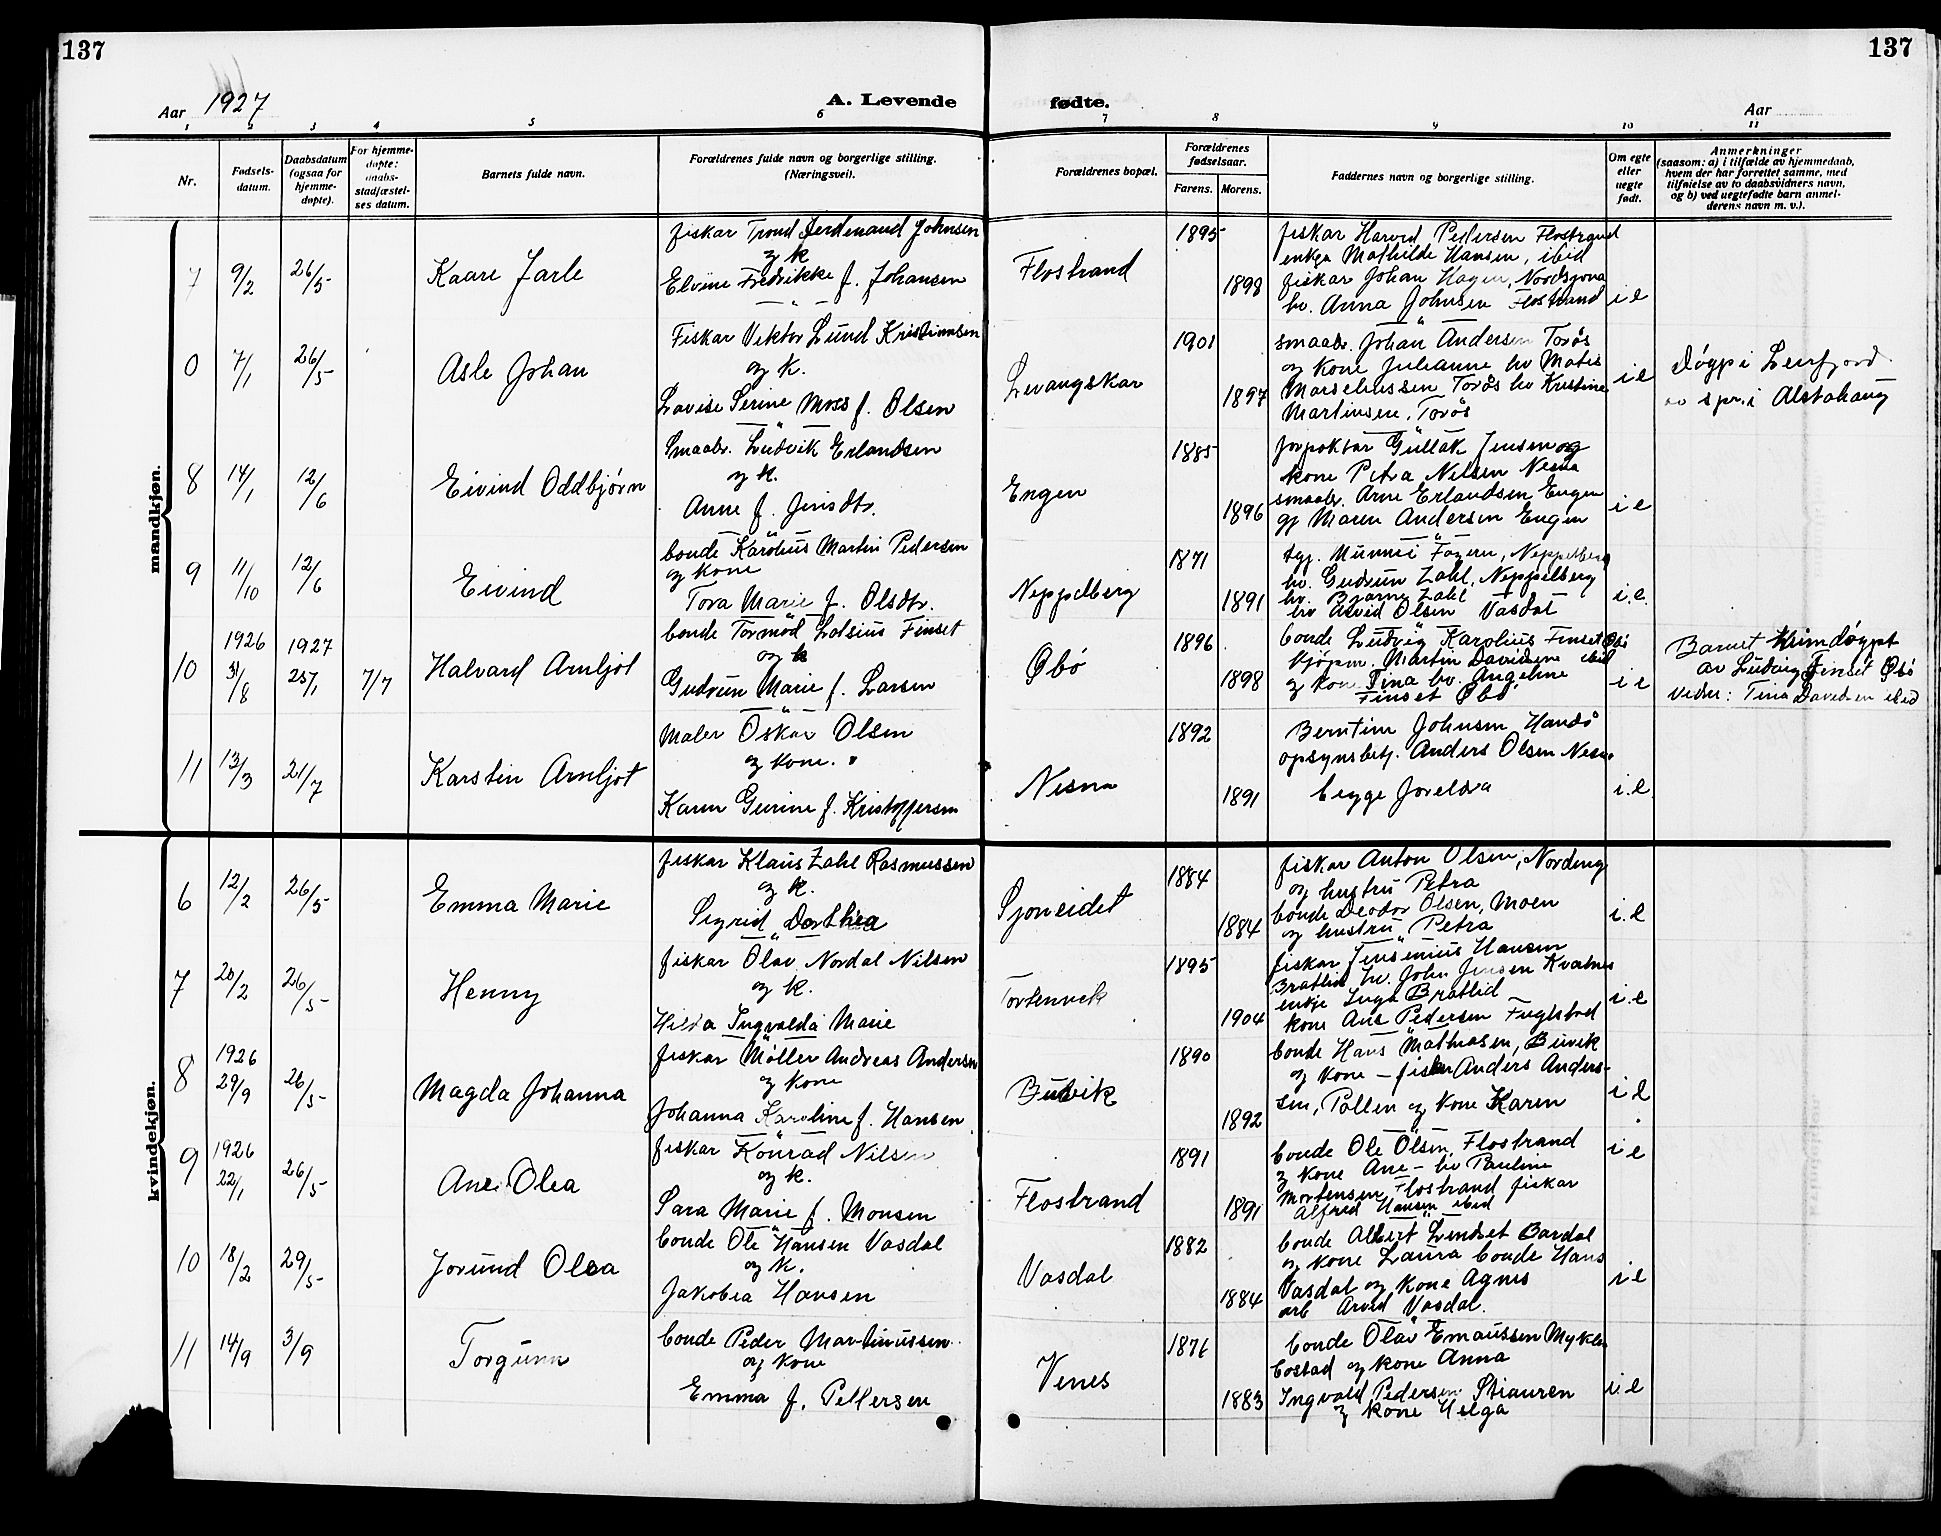 137
137
Aar 1927
A. Levende
fødte.
Aar
1 2 3 4 5 6 7 8 9 10 11
Nr.
Fødsels-
datum.
Daabsdatum
(ogsaa for
hjemme-
døpte).
For hjemme-
døpte:
daabs-
stadfæstel-
ses datum.
Barnets fulde navn.
Forældrenes fulde navn og borgerlige stilling.
(Næringsvei).
Forældrenes bopæl.
Forældrenes
fødselsaar.
Farens. Morens.
Faddernes navn og borgerlige stilling.
Om egte
eller
uegte
født.
Anmerkninger
(saasom: a) i tilfælde av hjemmedaab,
hvem der har forrettet samme, med
tilføielse av to daabsvidners navn,
og b) ved uegtefødte barn anmel-
derens navn m. v.).
mandkjøn.
7 9/2 26/5 Kaare Jarle
fiskar Trond Ferdinand Johnsen
og k
Elvine Fredrikke f. Johansen
Flostrand
1895
1898
fiskar Harvid Pedersen Flostrand
enkja Mathilde Hansen, ibid
fiskar Johan Hagen, Nordsjona
hv. Anna Johnsen Flostrand
i e
0 7/1 26/5 Asle Johan
Fiskar Viktor Lund Kristiansen
og k.
Lovise Serine Moss f. Olsen
Levangskar
1901
1897
smaabr. Johan Andersen Torøs
og kone Julianne hv Matis
Marseliussen Torøs hv Kristine
Martinsen, Torøs
i e
Døypt i Leirfjord
spr. i Alstahaug
8 14/1 12/6 Eivind Oddbjørn
Smaabr. Ludvik Erlandsen
og k.
Anne f. Jensdtr.
Engen
1885
1896
Gullak Jensen og
kone Petra Nilsen Nesna
smaabr. Arne Erlandsen Engen
gj Maren Andersen Engen
i e
9 11/10 12/6 Eivind
bonde Karolius Martin Pedersen
og kone
Tora Marie f. Olsdtr.
Neppelberg
1871
1891
Fagern, Neppelberg
hv. Gudrun Zahl, Neppelberg
hv. Bjarne Zahl
hv Arvid Olsen Vasdal
i.e.
10 1926 31/8 1927 25/1 7/7 Halvard Arnljot
bonde Tormod Lotsius Finset
og k
Gudrun Marie f. Larsen
Øbø
1896
1898
bonde Ludvig Karolius Finset Øbø
kjøpm. Martin Davidsen ibid
og kone Tina hv. Angeline
Finset Øbø
i e
Barnet heimdøypt
av Ludvig Finset Øbø
vidner: Tina Davidsen ibid
11 13/3 21/7 Karstin Arnljot
Maler Oskar Olsen
og kone.
Karen Gurine f. Kristoffersen
Nesna
1892
1891
Berntine Johnsen Handø
opsynsbetj. Anders Olsen Nesna
begge foreldra
i.e
kvindekjøn.
6 12/2 26/5 Emma Marie
fiskar Klaus Zahl Rasmussen
og k.
Sigrid Dorthea
Sjoneidet
1884
1884
fiskar Anton Olsen, Nordeng
og hustru Petra
bonde Deodor Olsen, Moen
og hustru Petra
i.e
7 20/2 26/5 Henny
fiskar Olav Nordal Nilsen
og k.
Hilda Ingvalda Marie
Tortenvik
1895
1904
fiskar Jensenius Hansen
Bratlid hv. John Jensen Kvalnes
enkje Inga Bratlid
kone Ane Pedersen Fuglstad
i.e
8 1926 29/9 26/5 Magda Johanna
fiskar Møller Andreas Andersen
og kone
Johanna Karoline f. Hansen
Buvik
1890
1892
bonde Hans Mathiasen, Buvik
og kone – fiskar Anders Anders-
sen, Pollen og kone Karen
i e
9 1926 22/1 26/5 Ane Olea
fiskar Konrad Nilsen
og k.
Sara Marie f. Monsen
Flostrand
1891
1891
bonde Ole Olsen, Flostrand
og kone Ane – hv Pauline
Mortensen Flostrand fiskar
Alfred Hansen ibid
i e
10 18/2 29/5 Jorund Olea
bonde Ole Hansen Vasdal
og k.
Jakobea Hansen
Vasdal
1882
1884
bonde Albert Lindset Bardal
og kone Laura bonde Hans
Vasdal og kone Agnes
arb Arvid Vasdal.
i e
11 14/9 3/9 Torgunn
bonde Peder Martinussen
og kone
Emma f. Pettersen
Venes
1876
1883
bonde Olav Emaussen Mykle-
bostad og kone Anna
Ingvald Pedersen Stiauren
og kone Helga
i.e